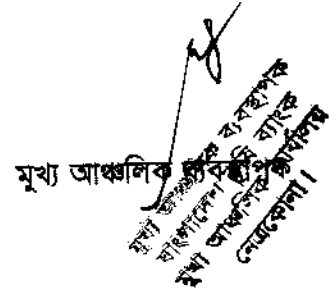 মুখ্য আঞ্চলিক ব্যবস্থাপক
মুখ্য আঞ্চলিক ব্যবস্থাপক
বাংলাদেশ কৃষি ব্যাংক
মুখ্য আঞ্চলিক কার্যালয়
নেত্রকোনা।